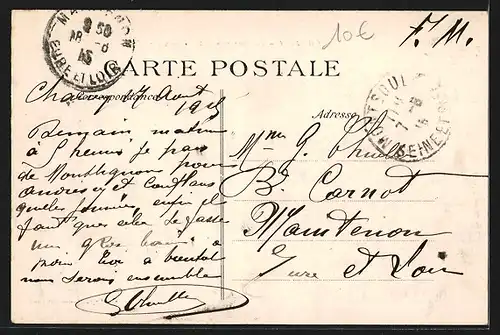 10€
F. M.
MAINTENON
9 50
18 - 8
15
EURE ET LOIR
CARTE POSTALE
Correspondance
Adresse
SEINE ET
Août
1915
Demain matin
à 5 heures je pars
de Montlignon pour
Andresy et Conflans
quelle journée enfin il
faut que cela se fasse
un gros baiser à
toi à bientôt
nous serons ensemble
Mme G.
B. Carnot
Maintenon
Eure et Loir